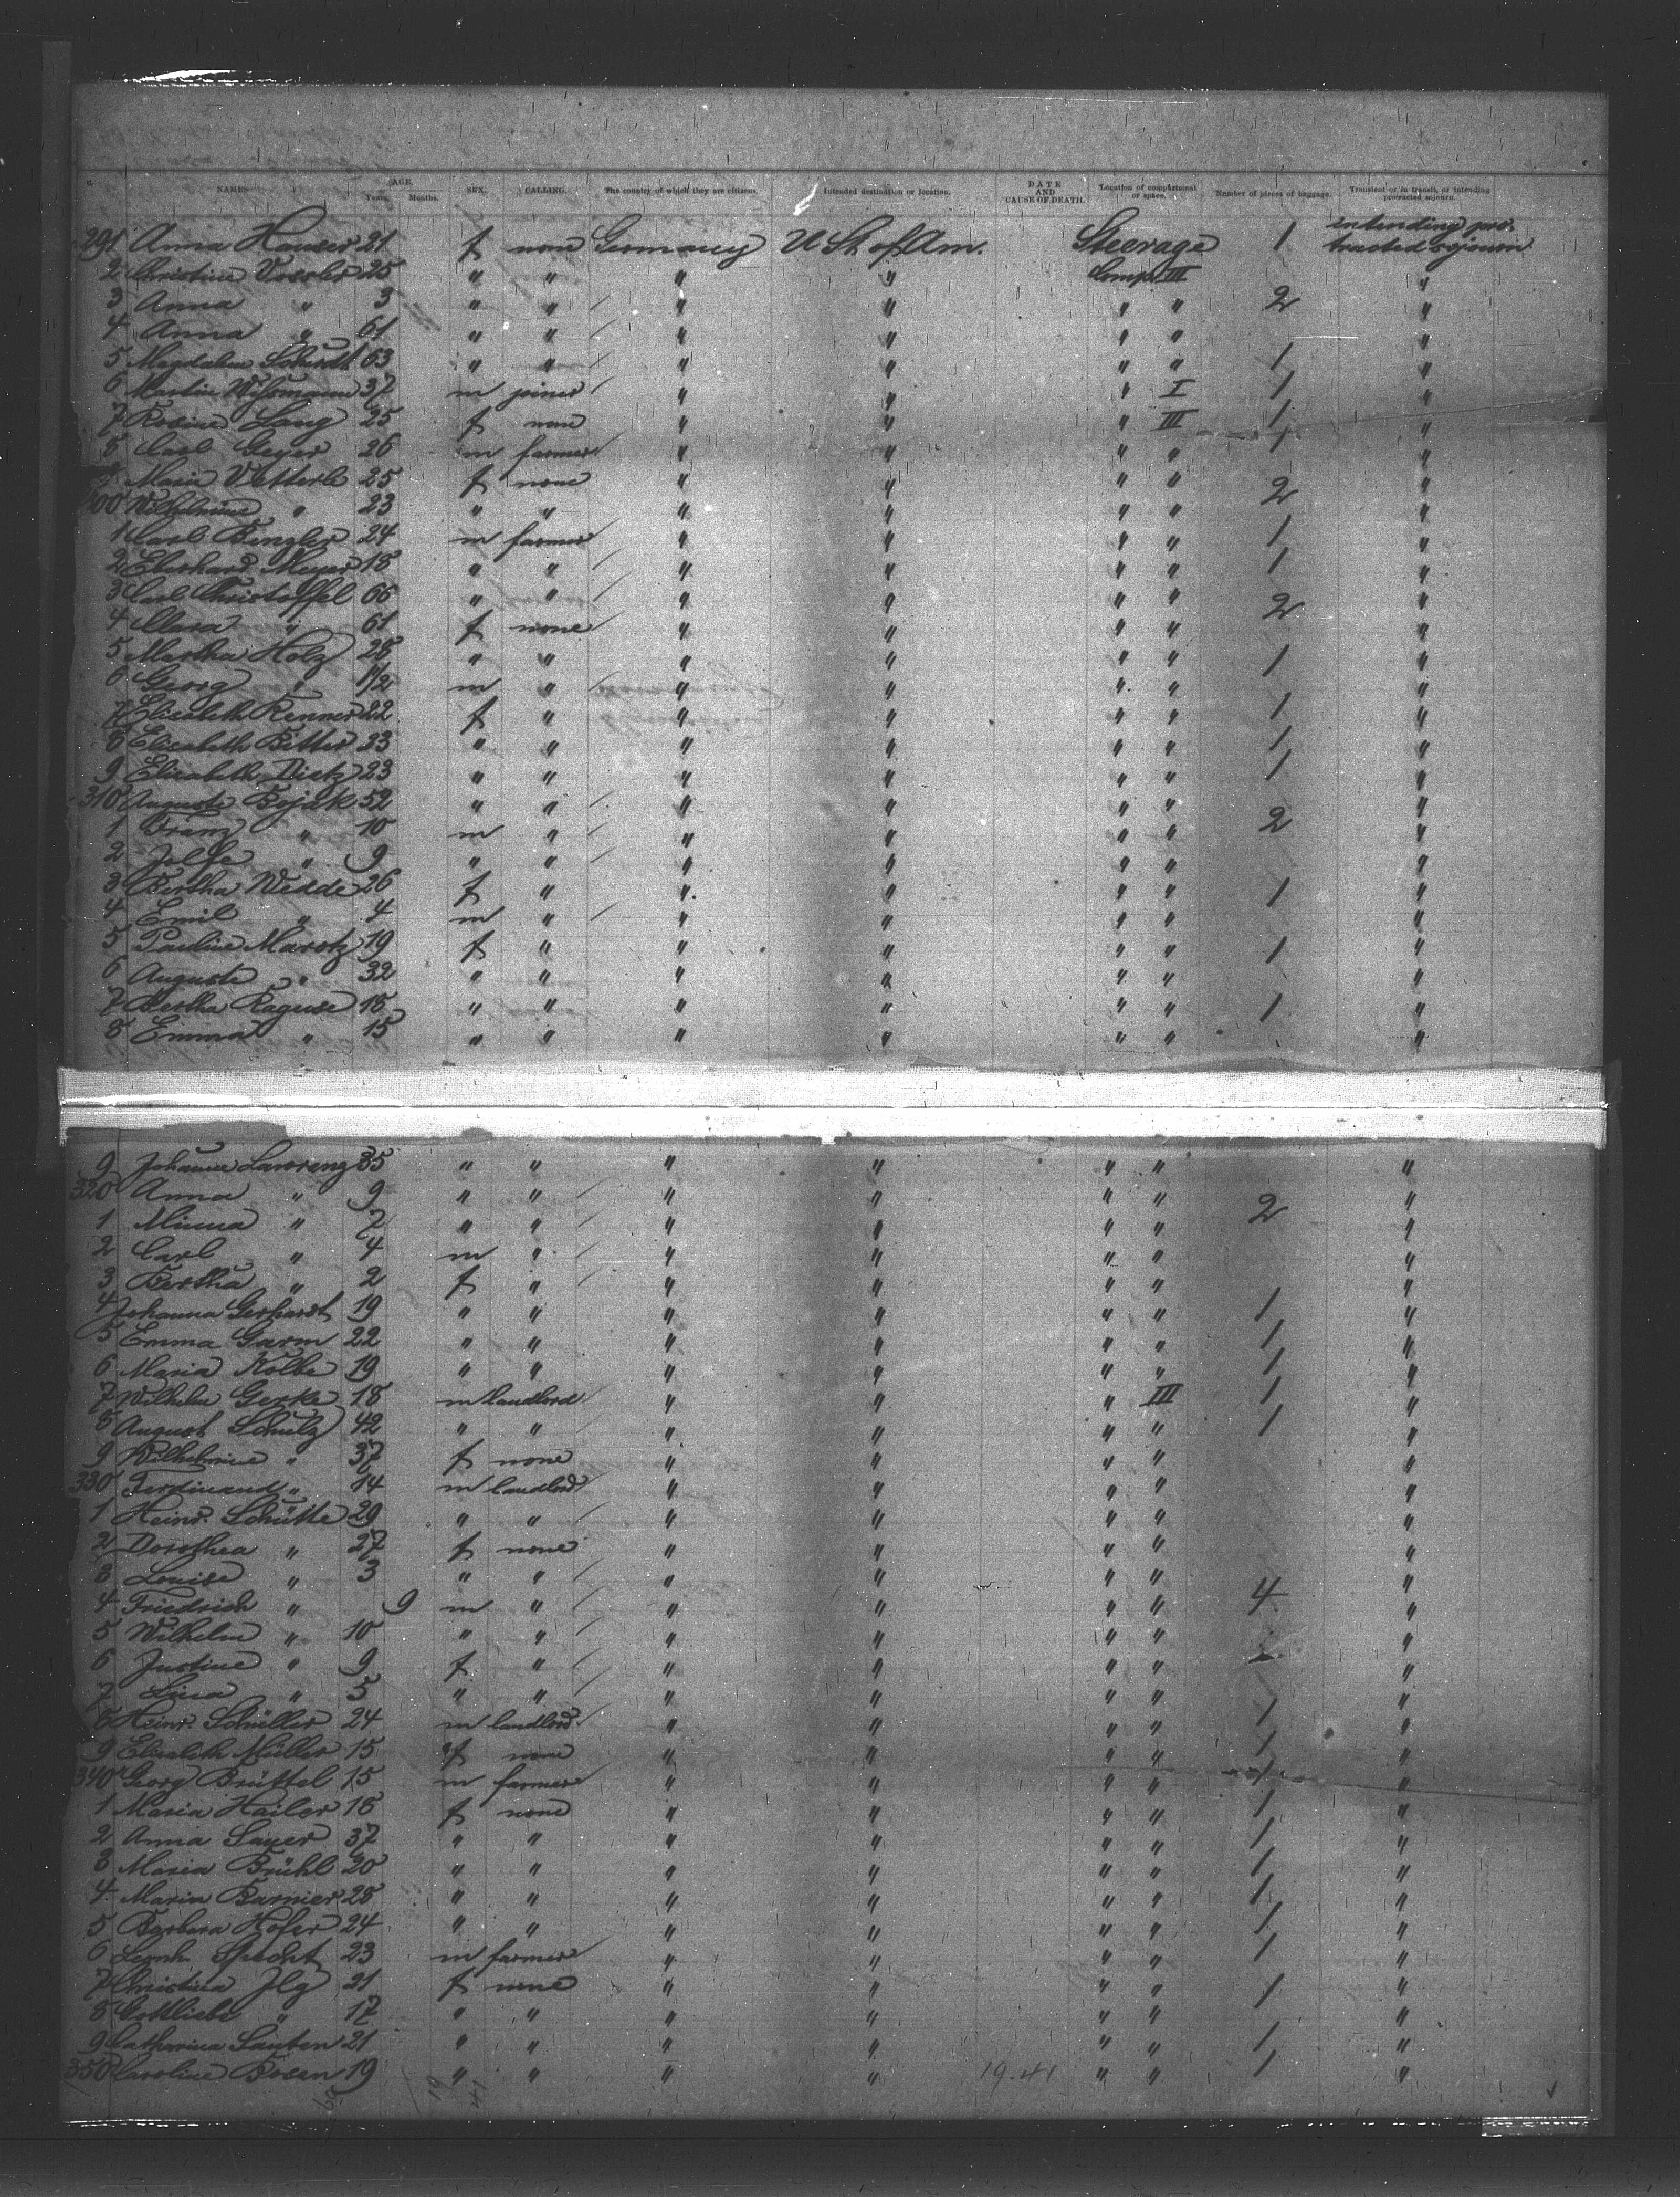 NAME. AGE. Years. Months. SEX. CALLING. The country of which they are citizens. Intended destination or location. DATE AND CAUSE OF DEATH. Location of compartment or space. Number of pieces of baggage. Transient or in transit, or intending protracted sojourn.
291 Anna Hauser 21 f none Germany U St of Am. Steerage 1 intending pro-tracted sojourn
2 Christine Vossler 25 " " " " Comp. III "
3 Anna " 3 " " " " " " 2 "
4 Anna " 61 " " " " " " "
5 Magdalena Schmidt 63 " " " " " " 1 "
6 Martin Wissmann 37 m joiner " " " I 1 "
7 Rosine Lang 25 f none " " " III 1 "
8 Carl Geyer 26 m farmer " " " " 1 "
9 Maria Vetterle 25 f none " " " " 2 "
300 Wilhelmine " 23 " " " " " " "
1 Carl Bengler 24 m farmer " " " " 1 "
2 Eberhard Meyer 18 " " " " " " 1 "
3 Carl Christoffel 66 " " " " " " 2 "
4 Clara " 61 f none " " " " "
5 Martha Holz 28 " " " " " " 1 "
6 Georg " 1/2 m " " " " " "
7 Elisabeth Renner 22 f " " " " " 1 "
8 Elisabeth Bitter 33 " " " " " " 1 "
9 Elisabeth Dietz 23 " " " " " " 1 "
310 Auguste Bojak 52 " " " " " " "
1 Franz " 10 m " " " " " 2 "
2 " 9 " " " " " " "
3 Bertha Wedde 26 f " " " " " 1 "
4 Emil " 4 m " " " " " "
5 Pauline Marotz 19 f " " " " " 1 "
6 Auguste " 32 " " " " " " "
7 Bertha Raguse 18 " " " " " " 1 "
8 Emma " 15 " " " " " " "
9 Johanne Lawrenz 35 " " " " " " "
320 Anna " 9 " " " " " " 2 "
1 Minna " 7 " " " " " " "
2 Carl " 4 m " " " " " "
3 Bertha " 2 f " " " " " "
4 Johanna Gerhardt 19 " " " " " " 1 "
5 Emma Garm 22 " " " " " " 1 "
6 Maria Kolbe 19 " " " " " " 1 "
7 Wilhelm Gerke 18 m landlord " " " III 1 "
8 August Schulz 42 " " " " " " 1 "
9 Wilhelmine " 37 f none " " " " "
330 Ferdinand " 14 m landlord " " " " "
1 Heinr. Schütte 29 " " " " " " "
2 Dorothea " 27 f none " " " " "
3 Louise " 3 " " " " " " "
4 Friedrich " 9 m " " " " " 4 "
5 Wilhelm " 10 " " " " " " "
6 Justine " 9 f " " " " " "
7 Lina " 5 " " " " " " "
8 Heinr. Schüller 24 m landlord " " " " 1 "
9 Elisabeth Müller 15 f none " " " " 1 "
340 Georg Brüttel 15 m farmer " " " " 1 "
1 Maria Hailer 18 f none " " " " 1 "
2 Anna Sauer 37 " " " " " " 1 "
3 Maria Brühl 20 " " " " " " 1 "
4 Maria Barnier 28 " " " " " " 1 "
5 Barbara Hofer 24 " " " " " " 1 "
6 Specht 23 m farmer " " " " 1 "
7 Christina Jlg 21 f none " " " " 1 "
8 Gottliebe " 17 " " " " " " "
9 Catharina Santen 21 " " " " " " 1 "
350 Caroline Bosen 19 " " " " 19-41 " " 1 "